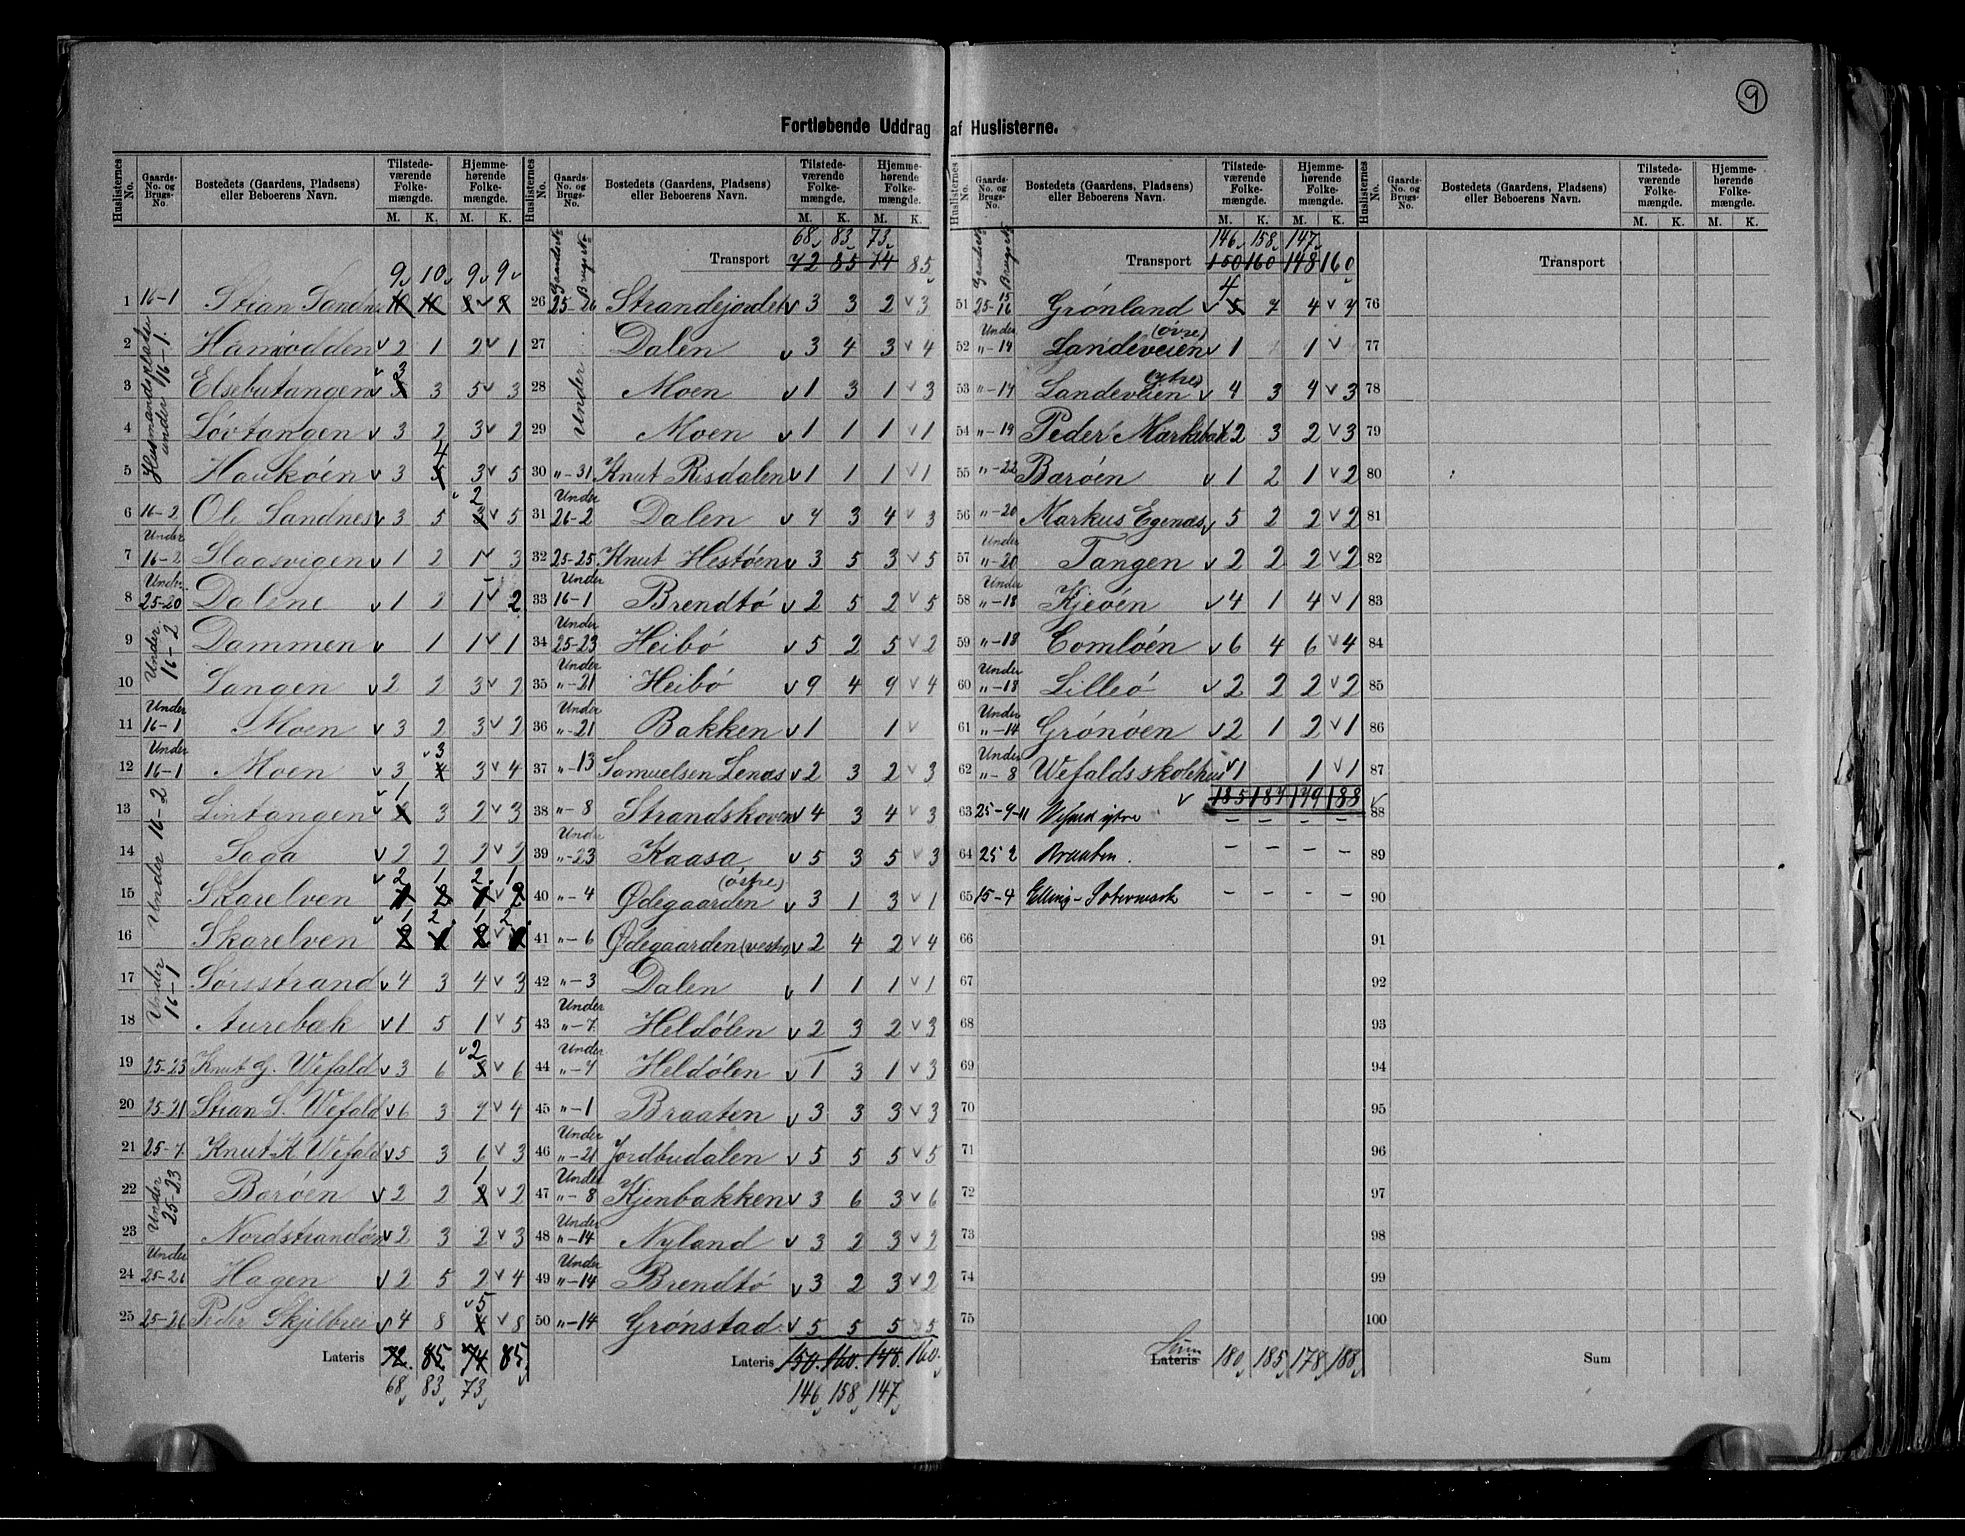 9
Fortløbende Uddrag af Huslisterne.
Huslisternes No. Gaards-No. og Brugs-No. Bostedets (Gaardens, Pladsens) eller Beboerens Navn. Tilstedeværende Folkemængde. M. K. Hjemmehørende Folkemængde. M. K.
9 10 9 9
1 16-1 Stian Sandnes 10 10 8 8
Husmandspladse under 16-1.
2 Hamrodden 2 1 2 1
3 Elsebutangen 3 3 5 3
4 Løvtangen 3 2 3 2
5 Haukøen 3 4 3 5
6 16-2 Ole Sandnes 3 5 2 5
7 Under 16-2 Slaasvigen 1 2 1 3
8 Under 25-20 Dalene 1 2 1 2
Under 16-2
9 Dammen 1 1 1
10 Langen 2 2 3 2
11 Under 16-1 Moen 3 2 3 2
12 Under 16-1 Moen 3 3 4 3 4
Under 16-2
13 Lintangen 1 3 2 3
14 Saga 2 2 2 2
15 Skarelven 2 1 2 1
16 Skarelven 1 2 1 2
Under 16-1
17 Sørsstrand 4 3 4 3
18 Aurebæk 1 5 1 5
19 25-23 Knut G. Wefald 3 6 2 3 6
20 25-21 Stian S. Wefald 6 3 7 4
21 25-7 Knut K Wefald 5 3 6 3
Under 25-23
22 Barøen 2 2 1 2 2
23 Nordstrandøn 2 3 2 3
24 Under 25-26 Hagen 2 5 2 4
25 25-26 Peder Skjelbrei 4 8 5 4 8
Lateris 72. 85 74 85.
68 83 73
Huslisternes No. Gaards-No. og Brugs-No. Bostedets (Gaardens, Pladsens) eller Beboerens Navn. Tilstedeværende Folkemængde. M. K. Hjemmehørende Folkemængde. M. K.
68 83 73
Transport 72 85 74 85
26 25-26 Strandejordet 3 3 2 3
Under
27 Dalen 3 4 3 4
28 Moen 1 3 1 3
29 Moen 1 1 1 1
30 "-31 Knut Risdalen 1 1 1 1
31 Under 26-2 Dalen 4 3 4 3
32 25-25 Knut Hestøen 3 5 3 5
33 Under 16-1 Brendtø 2 5 2 5
34 Under 25-23 Heibø 5 2 5 2
35 Under "-21 Heibø 9 4 9 4
36 Under "-21 Bakken 1 1
37 "-13 Samuelsen Lenæs 2 3 2 3
38 "-8 Strandskoven 4 3 4 3
39 Under "-23 Kaasa 5 3 5 3
40 "-4 Ødegaarden (østre) 3 1 3 1
41 "-6 Ødegaarden (vestre) 2 4 2 4
42 "-3 Dalen 1 1 1 1
43 Under "-7 Heldølen 2 3 2 3
44 Under "-7 Heldølen 1 3 1 3
45 "-1 Braaten 3 3 3 3
46 Under "-21 Jordbudalen 5 5 5 5
47 Under "-8 Kjenbakken 3 6 3 6
48 Under "-14 Nyland 3 2 3 2
49 Under "-14 Brendtø 3 2 3 2
50 "-14 Grønstad 5 5 5 5
Lateris 150. 160. 148. 160.
146 158 147
Huslisternes No. Gaards-No. og Brugs-No. Bostedets (Gaardens, Pladsens) eller Beboerens Navn. Tilstedeværende Folkemængde. M. K. Hjemmehørende Folkemængde. M. K.
146 158 147
Transport 150 160 148 160
51 25-15 16 Grønland 4 5 7 4 7
52 Under "-14 Landeveien (øvre) 1 1
53 "-14 Landeveien (ytre) 4 3 4 3
54 "-19 Peder Marksbak 2 3 2 3
55 "-22 Barøen 1 2 1 2
56 "-20 Markus Egenæs 5 2 2 2
57 Under "-20 Tangen 2 2 2 2
58 Under "-18 Kjeøen 4 1 4 1
59 "-18 Tomløen 6 4 6 4
60 Under "-18 Lilleø 2 2 2 2
61 Under "-14 Grønøen 2 1 2 1
62 Under "-8 Wefalds skolehus 1 1 1
185 187 179 188
63 25-9-11 Vefald ytre – – – –
64 25 2 Braaten. – – – –
65 15-4 Elling-Sætermark – – – –
66
67
68
69
70
71
72
73
74
75
Sum
Lateris 180 185 178 188
Huslisternes No. Gaards-No. og Brugs-No. Bostedets (Gaardens, Pladsens) eller Beboerens Navn. Tilstedeværende Folkemængde. M. K. Hjemmehørende Folkemængde. M. K.
Transport
76
77
78
79
80
81
82
83
84
85
86
87
88
89
90
91
92
93
94
95
96
97
98
99
100
Sum